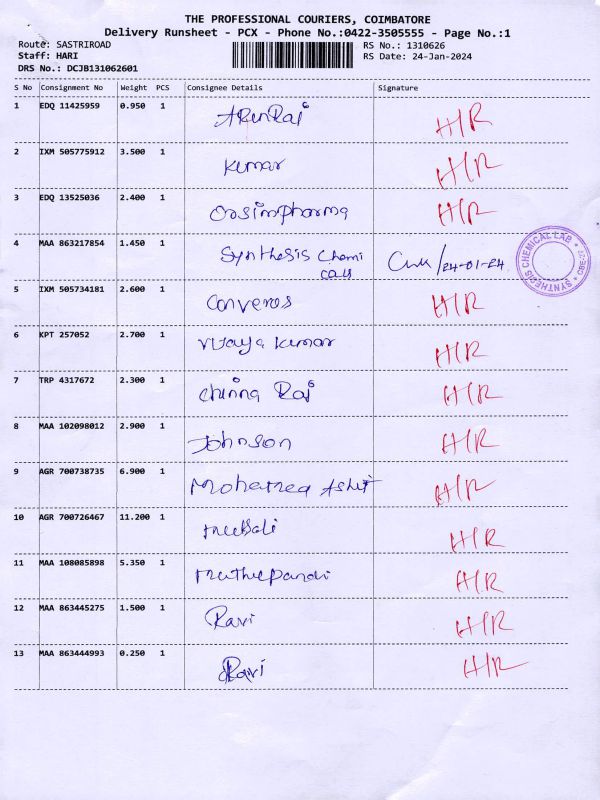 THE PROFESSIONAL COURIERS, COIMBATORE
Delivery Runsheet - PCX - Phone No.:0422-3505555 - Page No.:1
Route: SASTRIROAD RS No.: 1310626
Staff: HARI RS Date: 24-Jan-2024
DRS No.: DCJB131062601
S No Consignment No Weight PCS Consignee Details Signature
1 EDQ 11425959 0.950 1 ArunRaj H/R
2 IXM 505775912 3.500 1 Kumar H/R
3 EDQ 13525036 2.400 1 H/R
4 MAA 863217854 1.450 1 Synthesis Chemi /24-01-24
cals
SYNTHESIS CHEMICAL LAB * CBE-27 *
5 IXM 505734181 2.600 1 H/R
6 KPT 257052 2.700 1 Vijaya Kumar H/R
7 TRP 4317672 2.300 1 Chinna Raj H/R
8 MAA 102098012 2.900 1 Johnson H/R
9 AGR 700738735 6.900 1 H/R
10 AGR 700726467 11.200 1 H/R
11 MAA 108085898 5.350 1 H/R
12 MAA 863445275 1.500 1 Ravi H/R
13 MAA 863444993 0.250 1 Ravi H/R